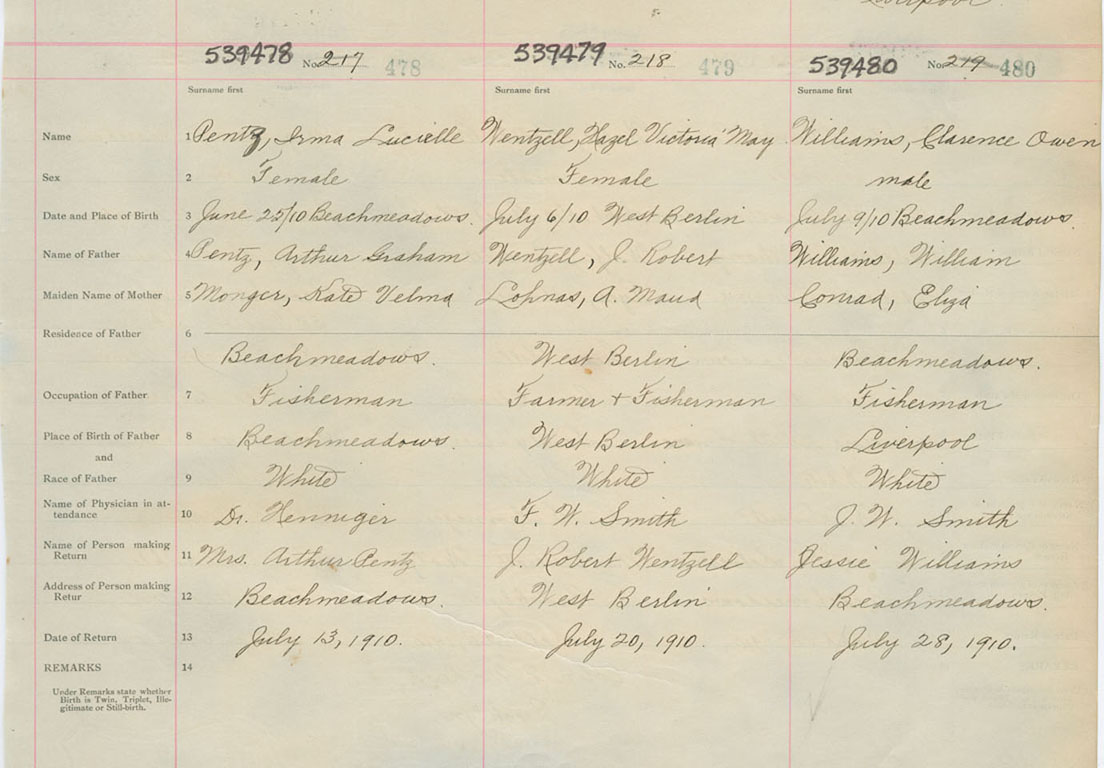 Liverpool
539478 No. 217 478 539479 No. 218 479 539480 No. 219 480
Surname first Surname first Surname first
Name 1 Pentz, Irma Lucielle Wentzell, Hazel Victoria May Williams, Clarence Owen
Sex 2 Female Female male
Date and Place of Birth 3 June 25/10 Beachmeadows. July 6/10 West Berlin July 9/10 Beachmeadows.
Name of Father 4 Pentz, Arthur Graham Wentzell, J. Robert Williams, William
Maiden Name of Mother 5 Monger, Kate Velma Lohnas, A. Maud Conrad, Eliza
Residence of Father 6
Beachmeadows. West Berlin Beachmeadows.
Occupation of Father 7 Fisherman Farmer + Fisherman Fisherman
Place of Birth of Father 8 Beachmeadows. West Berlin Liverpool
and
Race of Father 9 White White White
Name of Physician in at-
tendance 10 Dr. Henniger F. W. Smith J. W. Smith
Name of Person making
Return 11 Mrs. Arthur Pentz J. Robert Wentzell Jessie Williams
Address of Person making
Retur 12 Beachmeadows. West Berlin Beachmeadows.
Date of Return 13 July 13, 1910. July 20, 1910. July 28, 1910.
REMARKS 14
Under Remarks state whether
Birth is Twin, Triplet, Ille-
gitimate or Still-birth.